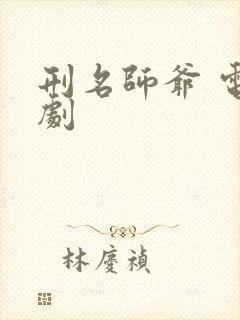 刑名師爺 電
劇
林慶禎